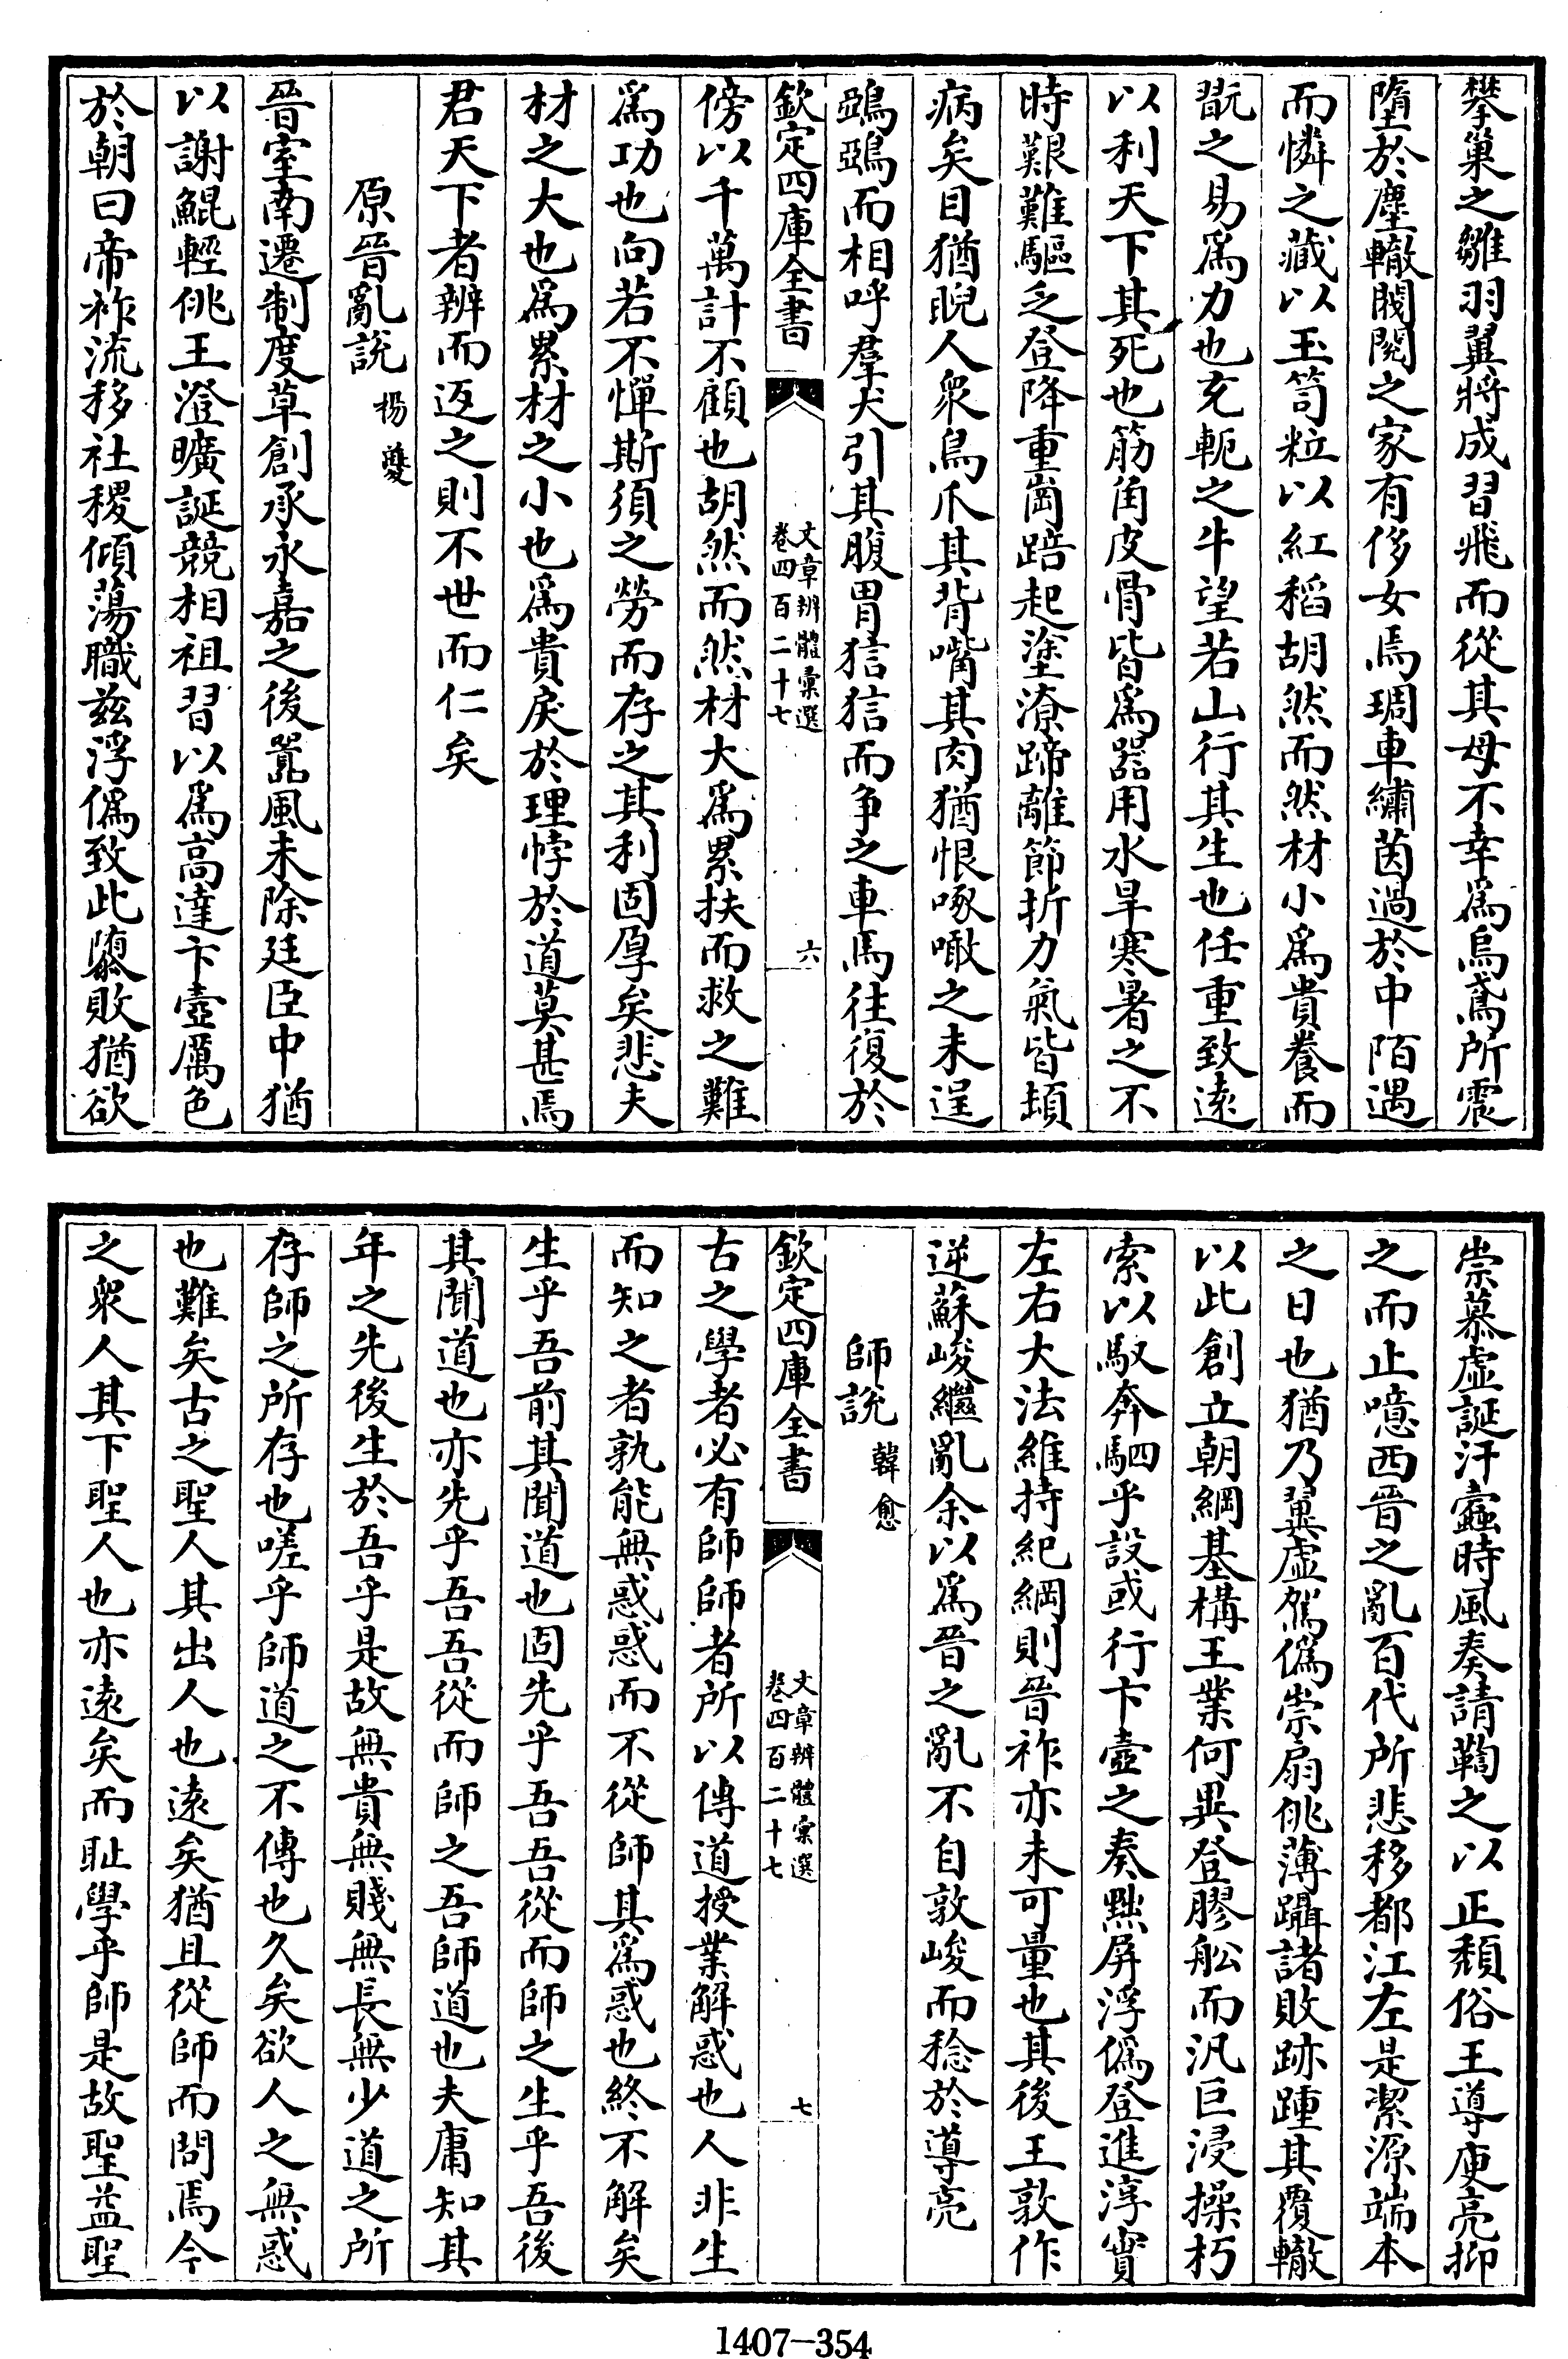 攀巢之雛羽翼將成習飛而從其母不幸爲烏鳶所震
墮於塵轍閥閱之家有侈女焉琱車繡茵過於中陌遇
而憐之藏以玉笥粒以紅稻胡然而然材小爲貴養而
翫之易爲力也充軛之牛望若山行其生也任重致遠
以利天下其死也筋角皮骨皆爲器用水旱寒暑之不
時艱難驅乏登降重崗踣起塗潦蹄離節折力氣皆頓
病矣目猶睨人衆鳥爪其背嘴其肉猶恨啄噉之未逞
鵶鵶而相呼羣犬引其腹胃狺狺而争之車馬往復於
欽定四庫全書
文章辨體彙選
卷四百二十七
六
傍以千萬計不顧也胡然而然材大爲累扶而救之難
爲功也向若不憚斯須之勞而存之其利固厚矣悲夫
材之大也爲累材之小也爲貴戾於理悖於道莫甚焉
君天下者辨而返之則不世而仁矣
原晉亂說 楊夔
晉室南遷制度草創承永嘉之後嚚風未除廷臣中猶
以謝鯤輕佻王澄曠誕競相祖習以爲高達卞壼厲色
於朝曰帝祚流移社稷傾蕩職兹浮僞致此隳敗猶欲
崇慕虛誕汙蠧時風奏請鞫之以正頽俗王導庾亮抑
之而止噫西晉之亂百代所悲移都江左是潔源端本
之日也猶乃翼虛駕僞崇扇佻薄躡諸敗跡踵其覆轍
以此創立朝綱基構王業何異登膠船而汎巨浸操朽
索以馭奔駟乎設或行卞壼之奏黜屏浮僞登進淳實
左右大法維持紀綱則晉祚亦未可量也其後王敦作
逆蘇峻繼亂余以爲晉之亂不自敦峻而稔於導亮
師說 韓愈
欽定四庫全書
文章辨體彙選
卷四百二十七
七
古之學者必有師師者所以傳道授業解惑也人非生
而知之者孰能無惑惑而不從師其爲惑也終不解矣
生乎吾前其聞道也固先乎吾吾從而師之生乎吾後
其聞道也亦先乎吾吾從而師之吾師道也夫庸知其
年之先後生於吾乎是故無貴無賤無長無少道之所
存師之所存也嗟乎師道之不傳也久矣欲人之無惑
也難矣古之聖人其出人也遠矣猶且從師而問焉今
之衆人其下聖人也亦遠矣而耻學乎師是故聖益聖
1407-354